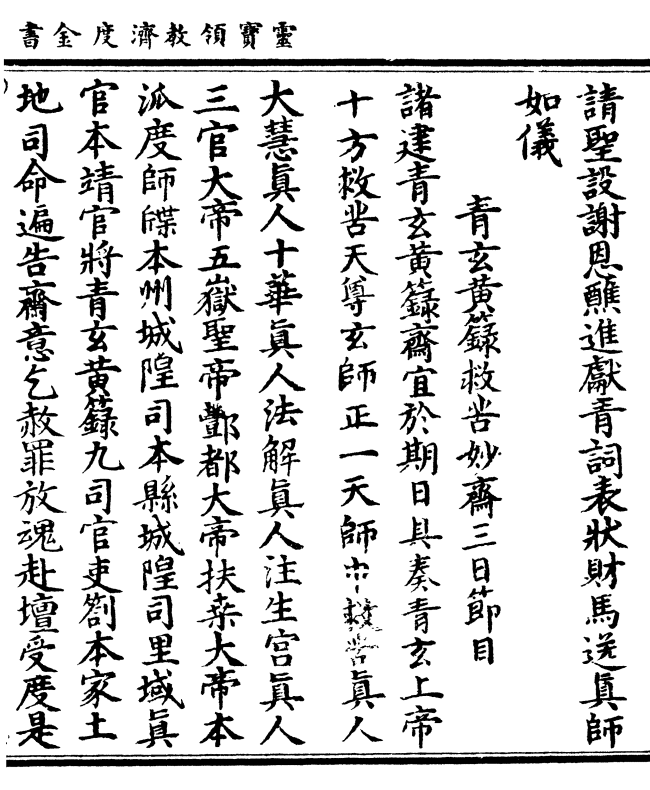 靈寶領教濟度金書
請聖設謝恩醮進獻青詞表狀財馬送眞師
如儀
青玄黃籙救苦妙齋三日節目
諸建青玄黃籙齋宜於期日具奏青玄上帝
十方救苦天尊玄師正一天師眞人
大慧眞人十華眞人法解眞人注生宮眞人
三官大帝五嶽聖帝酆都大帝扶桒大帝本
派度師牒本州城隍司本縣城隍司里域眞
官本靖官將青玄黃籙九司官吏劄本家土
地司命遍告齋意乞赦罪放魂赴壇受度是